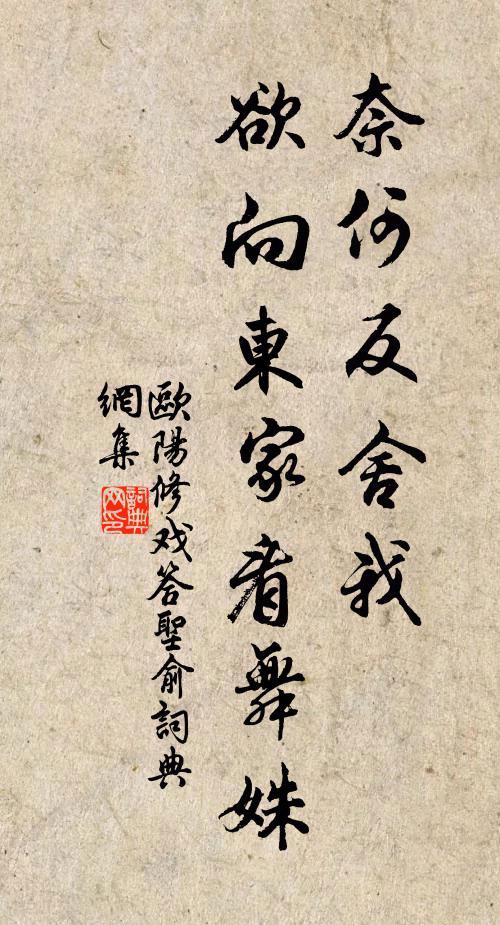 奈何反舍我
欲向東家看舞姝
歐陽修戏答聖俞詞典
網集
詞典
网印